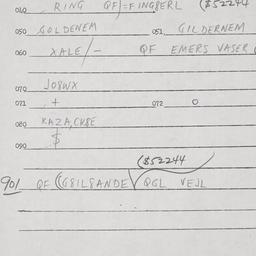 040 RING QF)=FINGSERL (852244
050 GOLDENEM 051 GILDERNEM
060 XALE/- QF EMERS VASER
070 JO8WX
071 + 072 O
080 KAZA,CV8E
090 $
(852244
901 QF ((G8IL8ANDE QGL VEJL